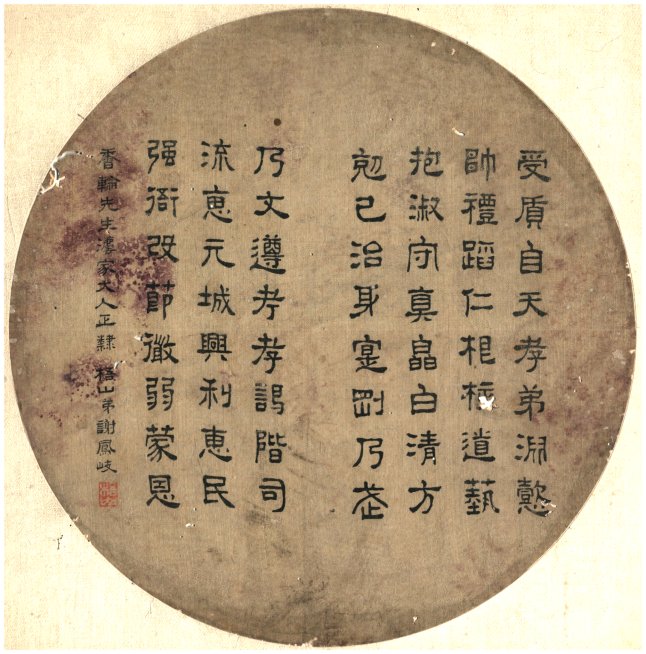 受質自天孝弟淵懿
帥禮蹈仁根核道藝
抱淑守真皛白清方
尅己治身寔剛乃武
乃文遵考孝謁階司
流恵元城興利恵民
强衙改節微弱蒙恩
香輪先生灋家大人正隸 山弟謝鳳岐